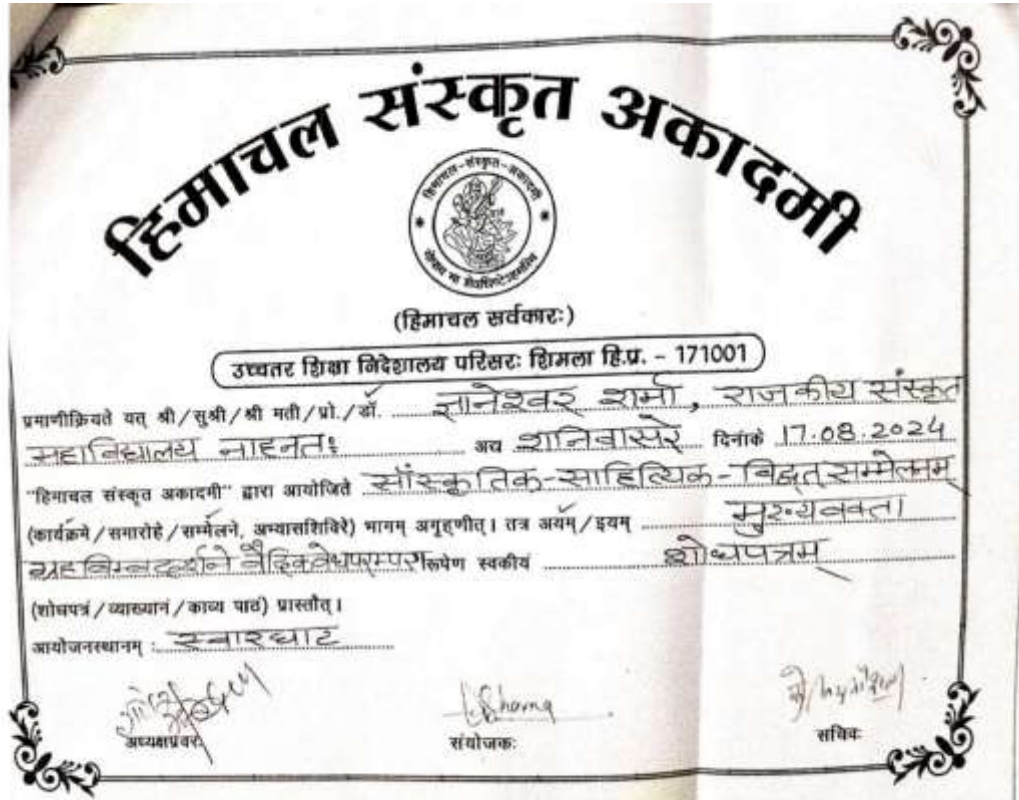 हिमाचल संस्कृत अकादमी
हिमाचल-संस्कृत-अकादमी
(हिमाचल सर्वकारः)
उच्चतर शिक्षा निदेशालय परिसरः शिमला हि.प्र. - 171001
प्रमाणीक्रियते यत् श्री/सुश्री/श्री मती/प्रो./डॉ. ज्ञानेश्वर शर्मा, राजकीय संस्कृत
महाविद्यालय नाहनतः अद्य शनिवासरे दिनांके 17.08.2024
"हिमाचल संस्कृत अकादमी" द्वारा आयोजिते साँस्कृतिक-साहित्यिक-विद्वत् सम्मेलनम्
(कार्यक्रमे/समारोहे/सम्मेलने, अभ्यासशिविरे) भागम् अगृहणीत्। तत्र अयम्/इयम् मुख्यवक्ता
ग्रहबिम्बदर्शने वैदिकवेधपरम्परा रूपेण स्वकीयं शोधपत्रम्
(शोधपत्रं/व्याख्यानं/काव्य पाठं) प्रास्तौत्।
आयोजनस्थानम् : स्वारघाट
अध्यक्षप्रवरः संयोजकः सचिवः